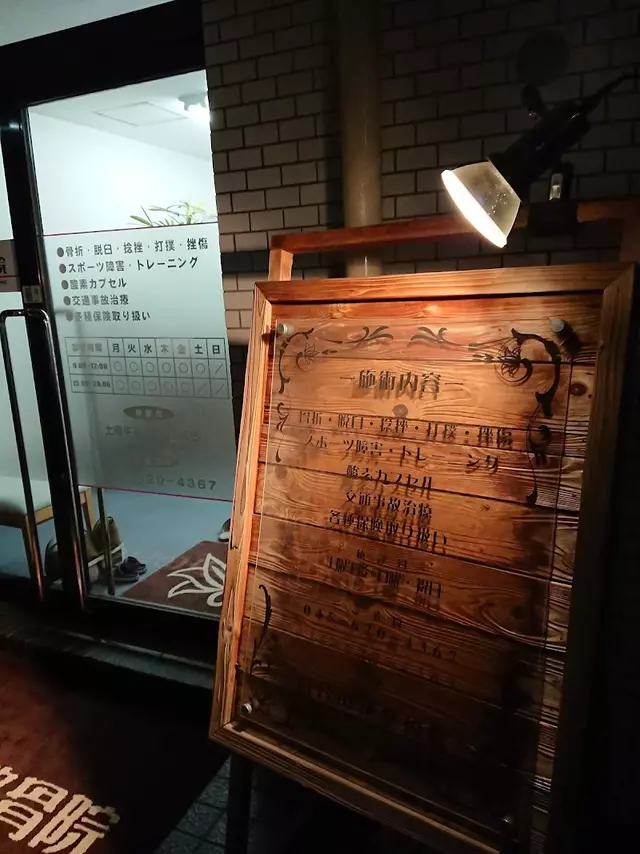 ●骨折・脱臼・捻挫・打撲・挫傷
●スポーツ障害・トレーニング
●酸素カプセル
●交通事故治療
●各種保険取り扱い
月 火 水 木 金 土 日
9:00-12:00 ○ ○ ○ ○ ○ ○ ／
○ ○ ○ ○ ○ ／ ／
4367
施術内容
骨折・脱臼・捻挫・打撲・挫傷
スポーツ障害・トレーニング
酸素カプセル
交通事故治療
各種保険取り扱い
土曜午後・日曜・祝日
骨院